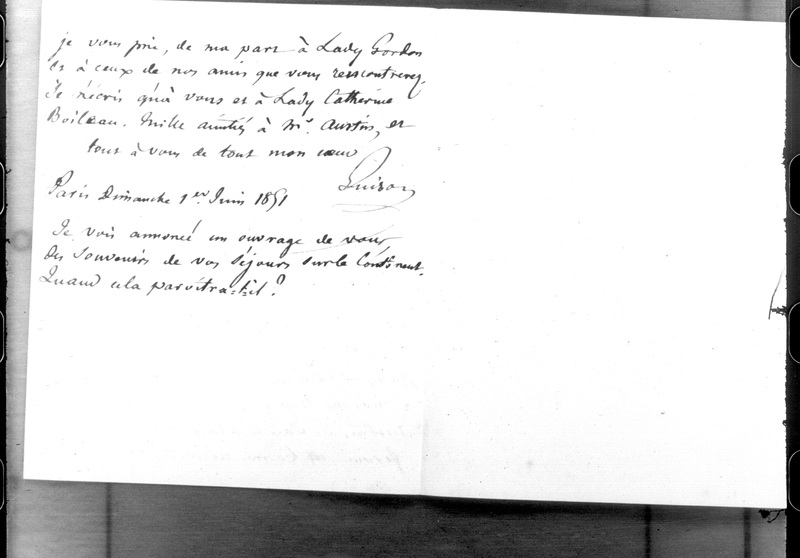 je vous prie, de ma part à Lady Gordon
et à ceux de nos amis que vous rencontrerez.
Je n'écris qu'à vous et à Lady Catherine
Boileau. Mille amitiés à Mr. Austin, et
tout à vous de tout mon cœur
Guizot
Paris Dimanche 1er Juin 1851
Je vois annoncé un ouvrage de vous,
des Souvenirs de vos séjours sur le Continent.
Quand cela paroîtra-t-il?